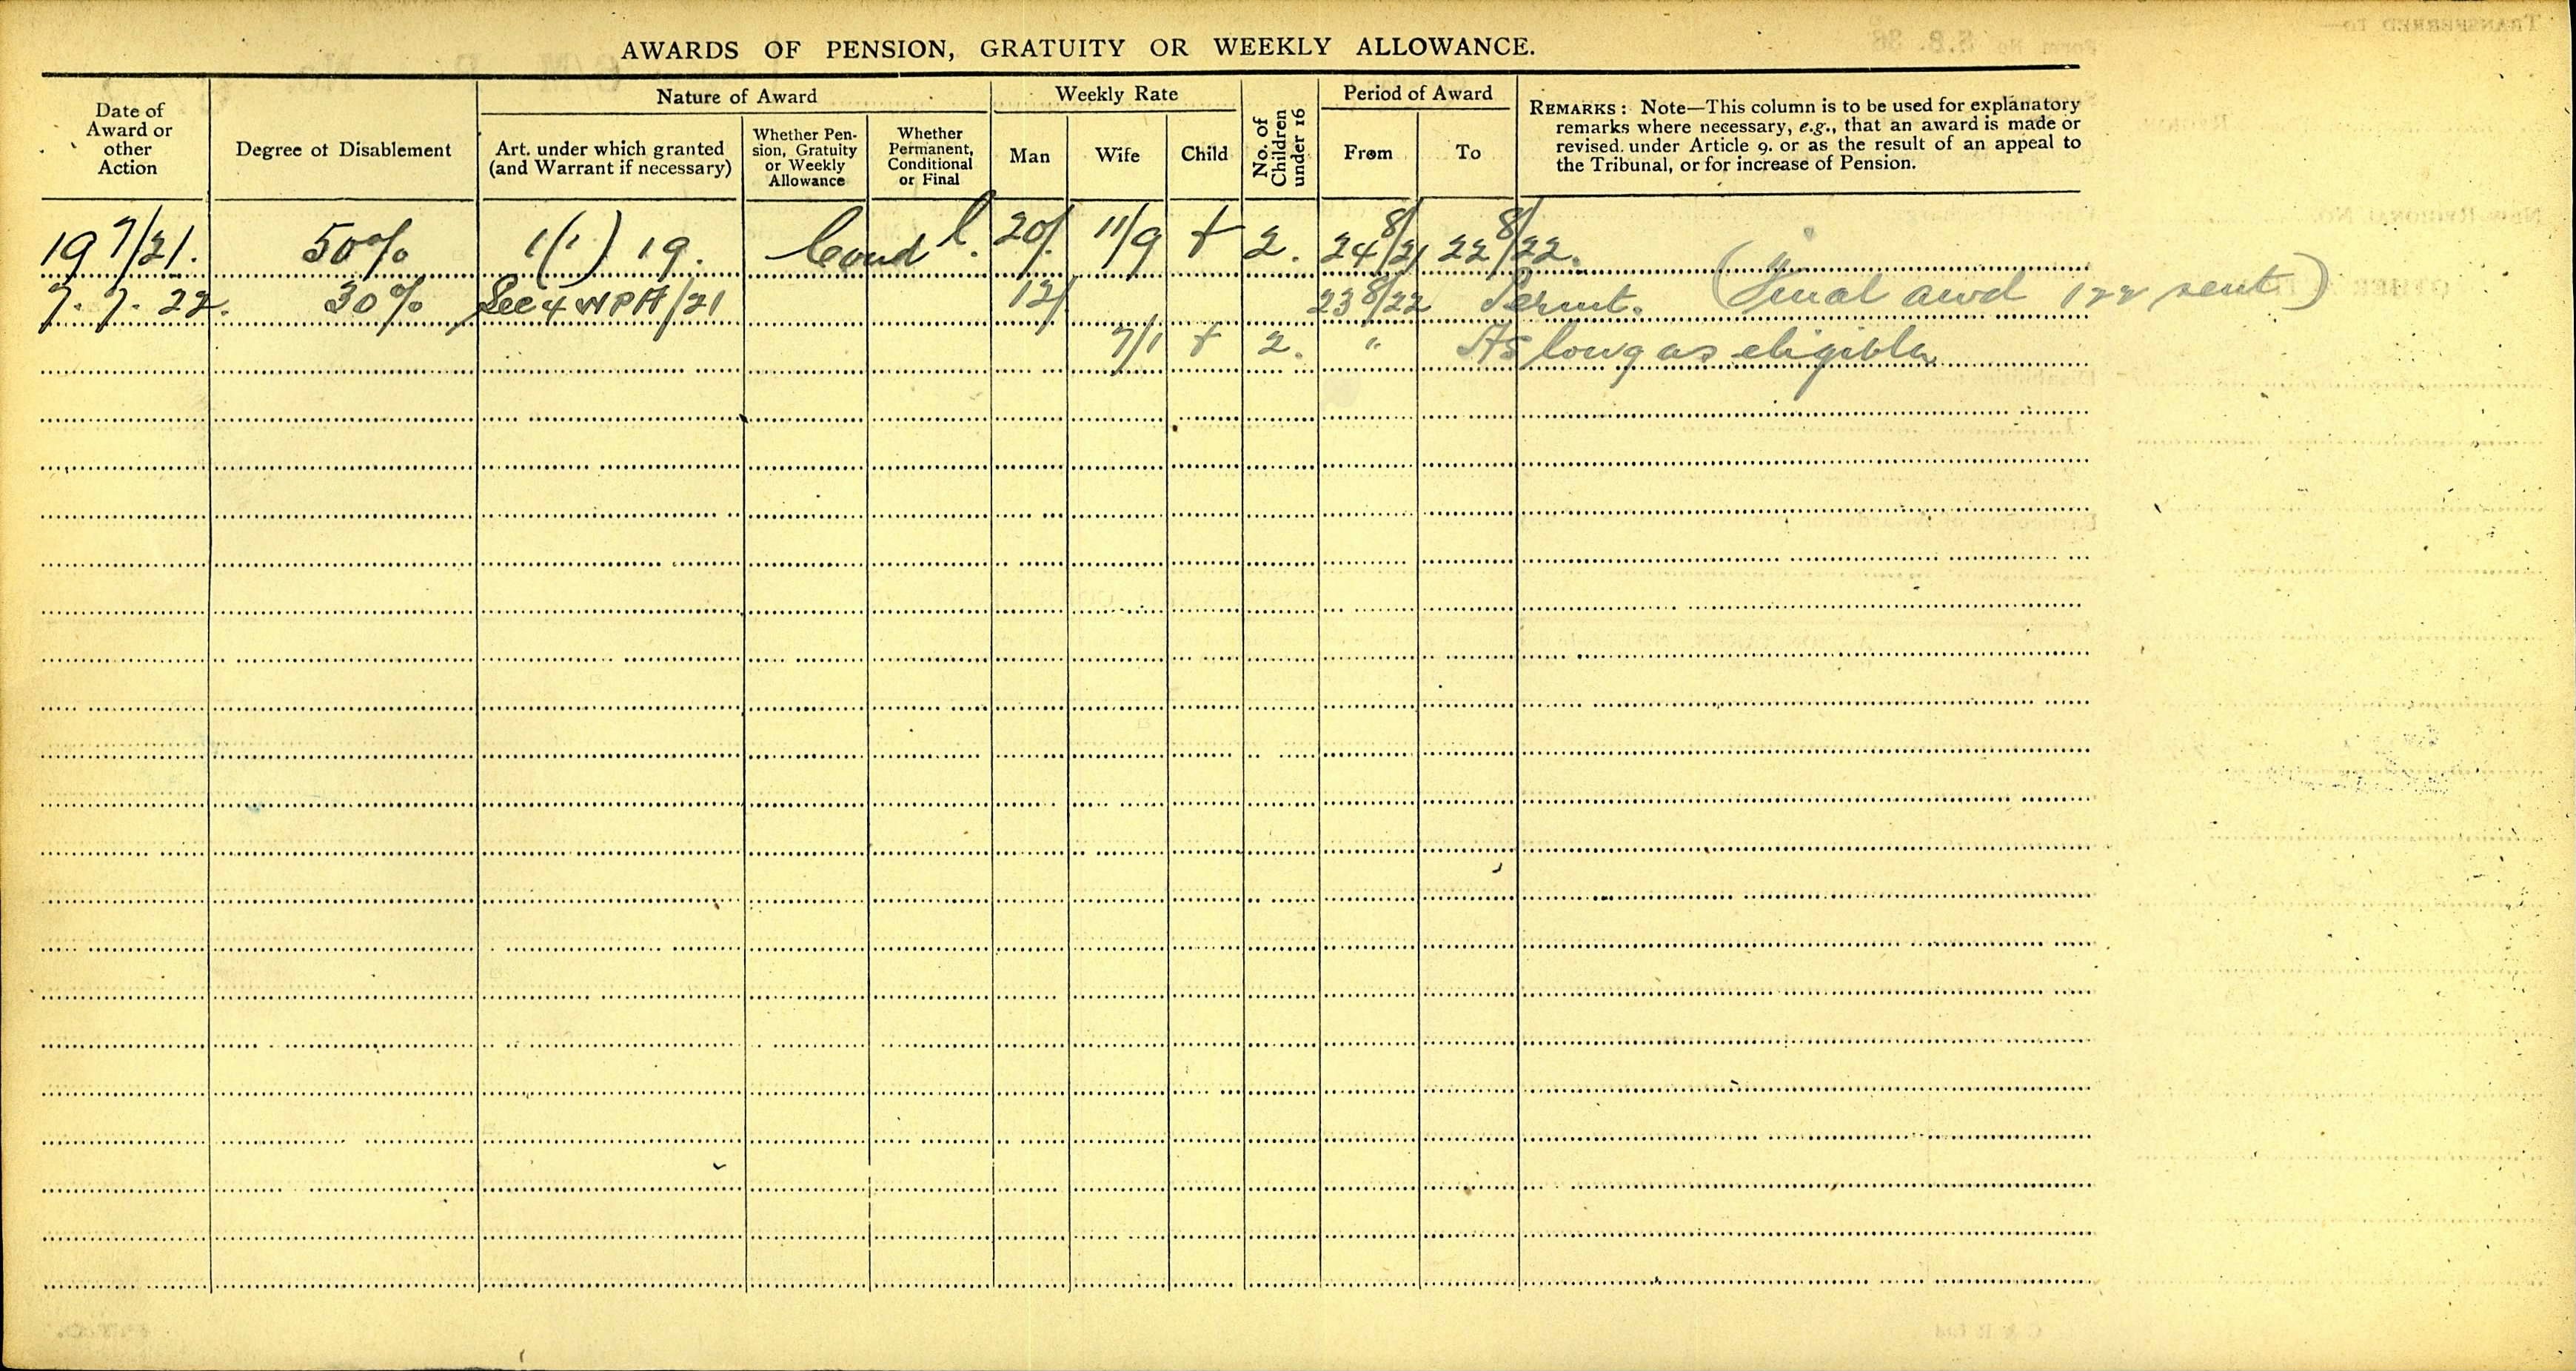 AWARDS OF PENSION, GRATUITY OR WEEKLY ALLOWANCE.
Date of
Award or
other
Action
Degree of Disablement
Nature of Award
Art. under which granted
(and Warrant if necessary)
Whether Pen-
sion, Gratuity
or Weekly
Allowance
Whether
Permanent,
Conditional
or Final
Weekly Rate
Man
Wife
Child
No. of
Children
under 16
Period of Award
From
To
REMARKS: Note—This column is to be used for explanatory
remarks where necessary, e.g., that an award is made or
revised. under Article 9. or as the result of an appeal to
the Tribunal, or for increase of Pension.
19 7/21. 50% 1(1) 19. Cond l. 20/. 11/9 + 2. 24 8/21 22 8/22.
7.7.22. 30% Sec 4 WPA/21 12/ 23 8/22 Permt. (Final awd 122 sent)
7/1 + 2. " As long as eligible